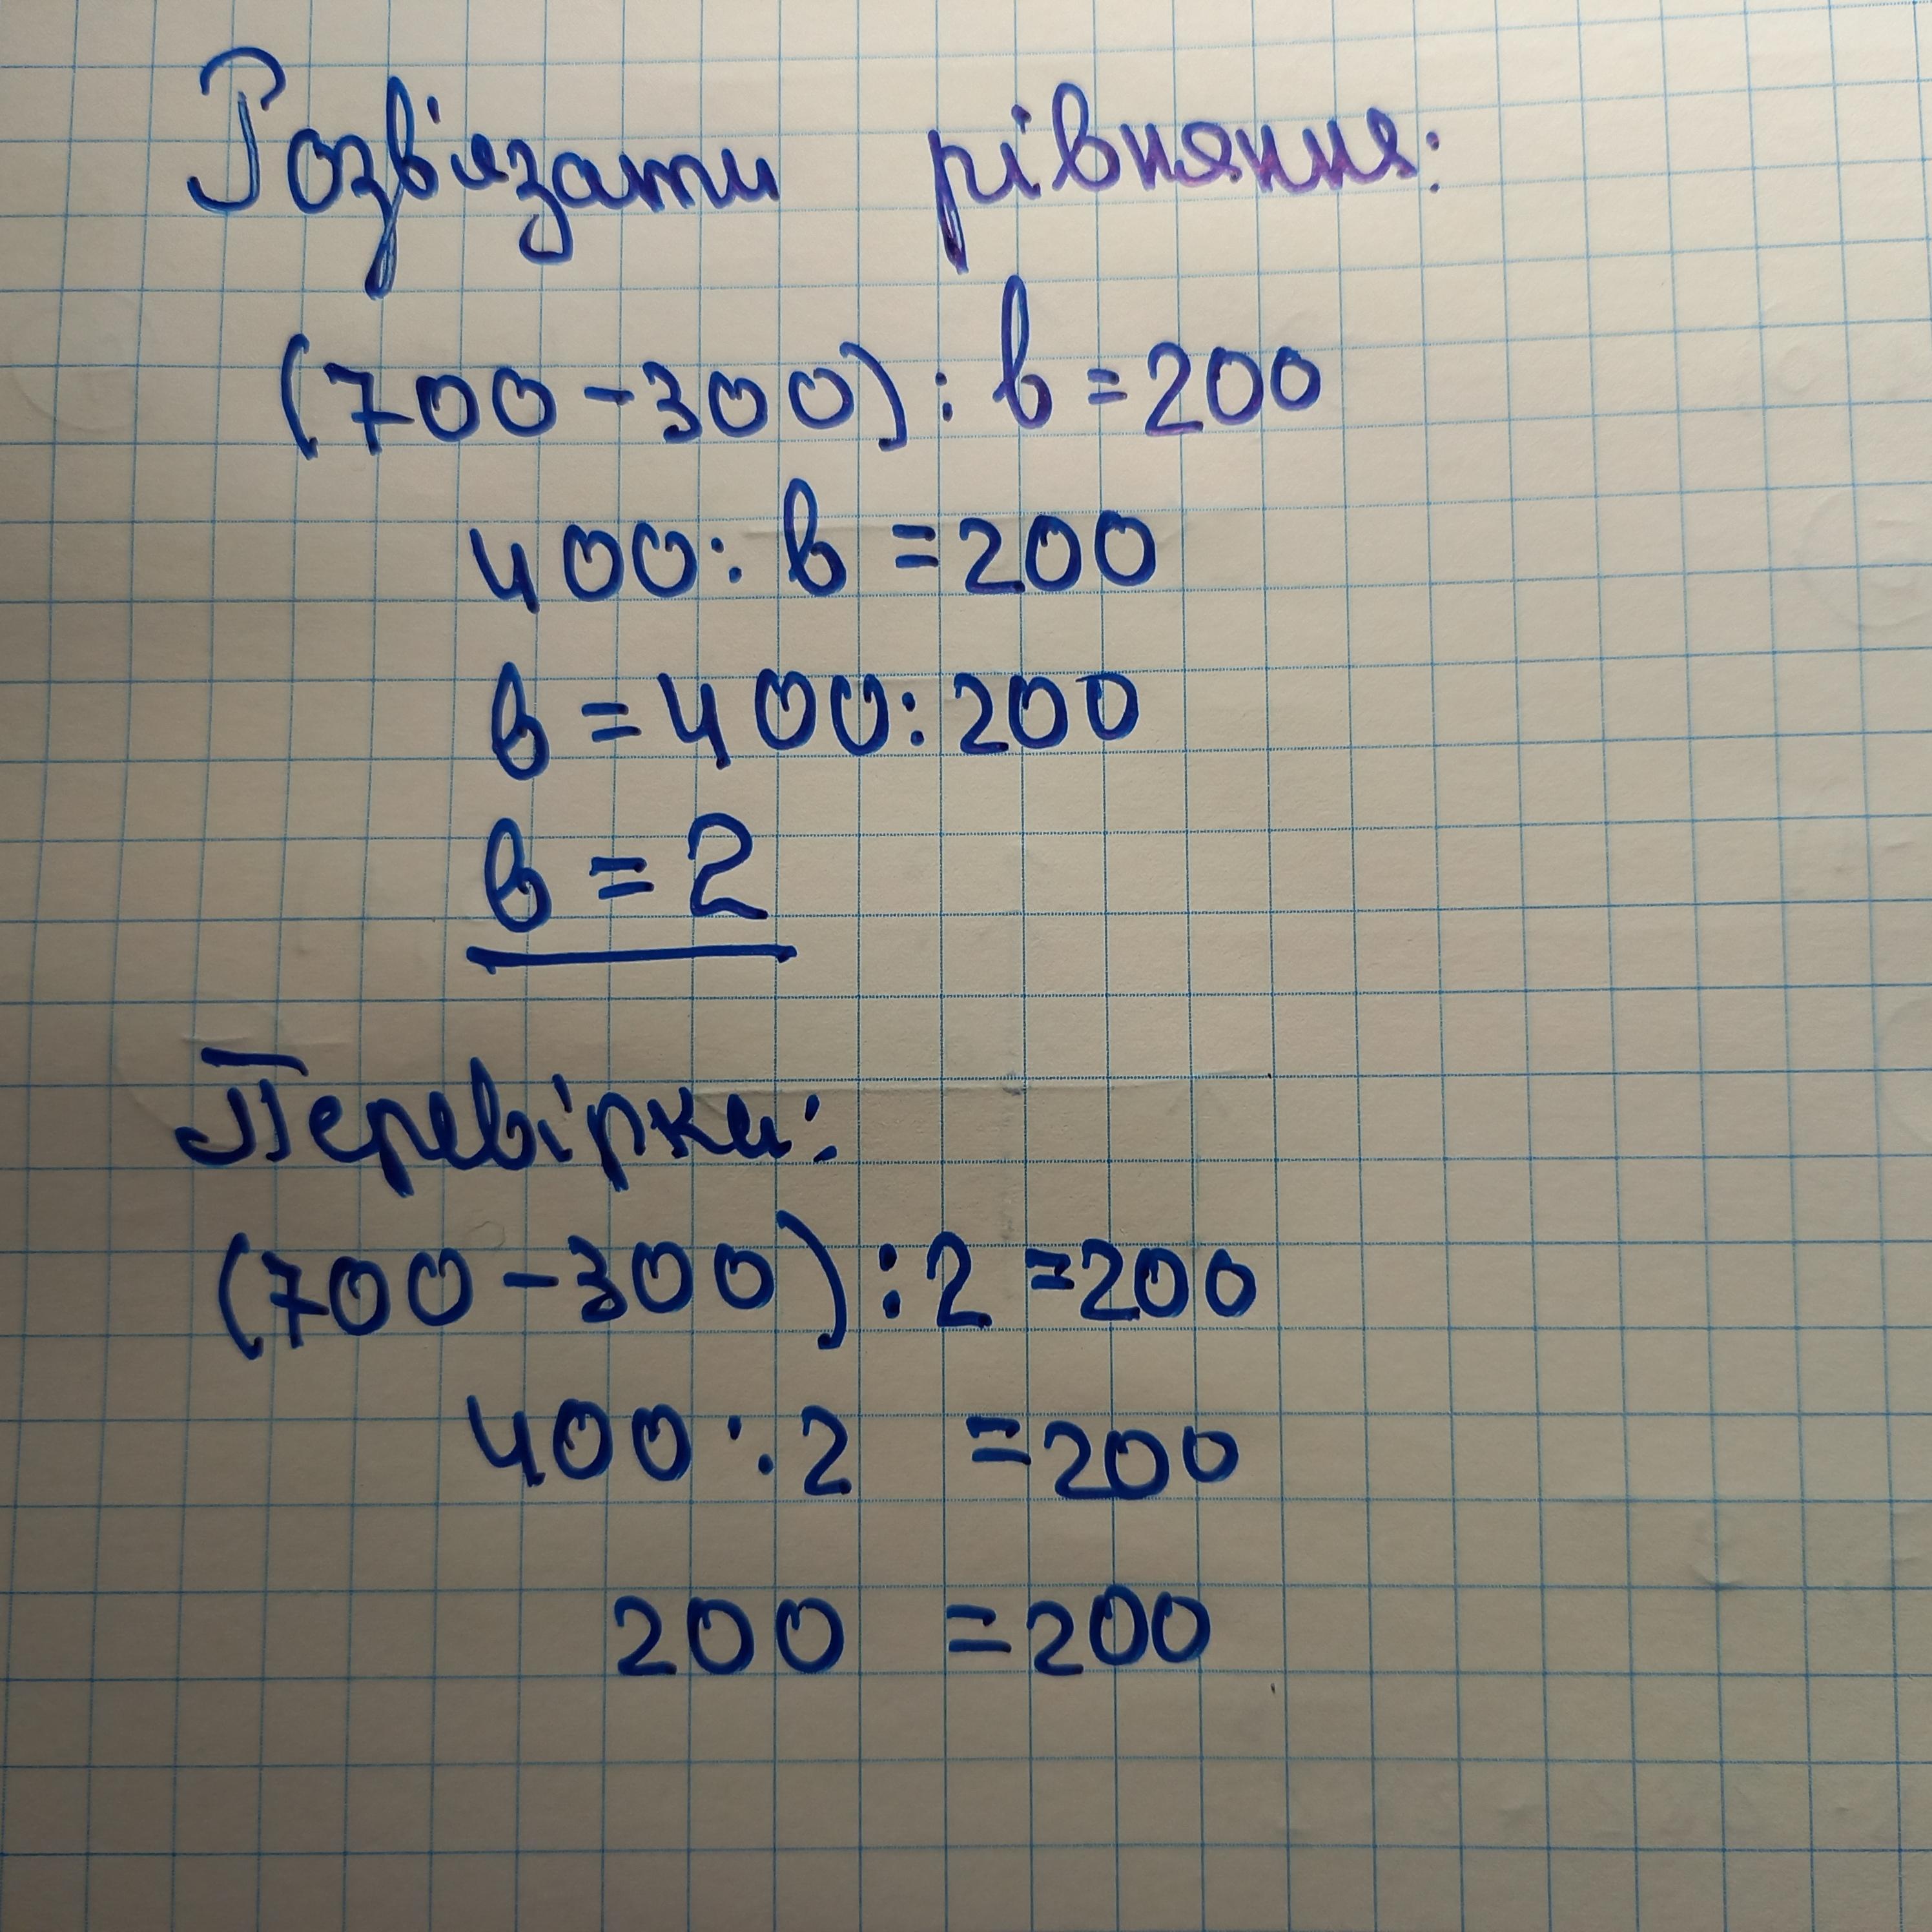 Розв'язати рівняння:
(700-300):в=200
400:в=200
в=400:200
в=2
Перевірка:
(700-300):2=200
400:2=200
200=200